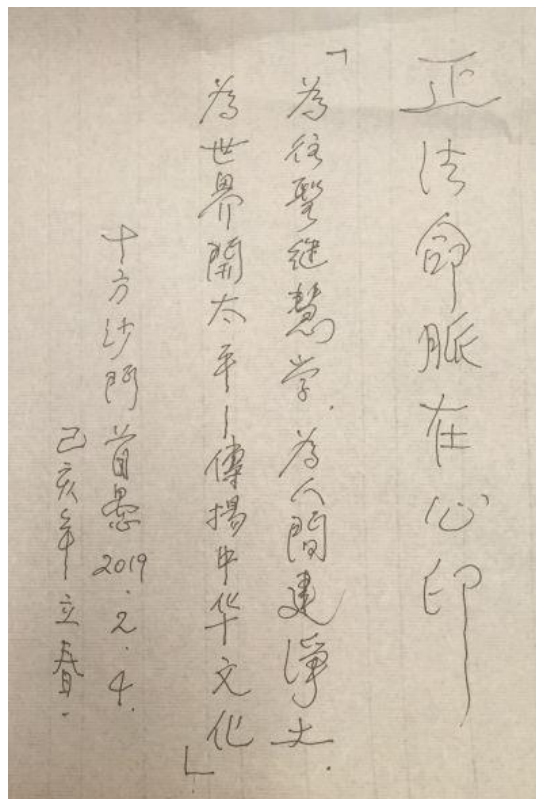 正法命脈在心印
「為往聖继慧学.為人間建淨土.
為世界開太平—傳揚中华文化」
十方沙門首愚2019.2.4.
己亥年立春.